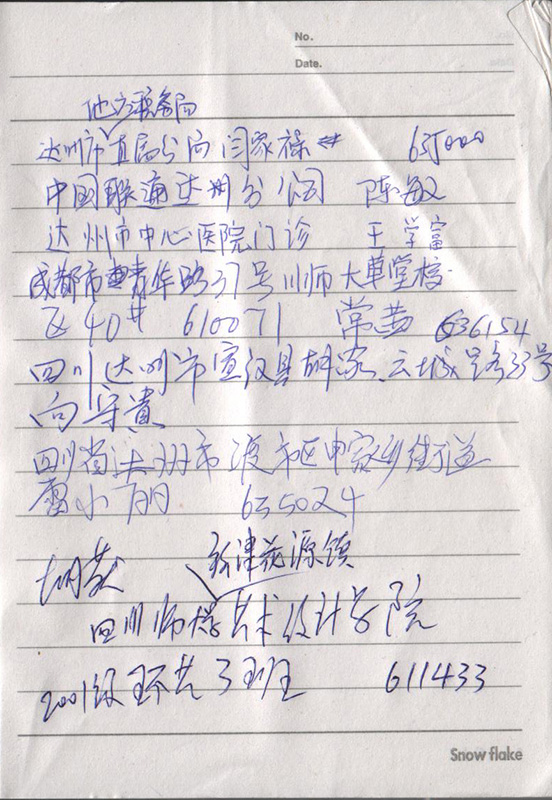 No.
Date.
地方税务局
达州市直属分局 闫家禄 635000
中国联通达州分公司 陈敏
达州市中心医院门诊 王学富
成都市青华路37号川师大草堂校
区40# 610071 常茜 636154
四川达州市宣汉县胡家 云城路33号
向守贵
四川省达州市渡市区申家乡街道
雷小丽 635024
新津花源镇
胡
四川师大艺术设计学院
2001级环艺3班 611433
Snow flake